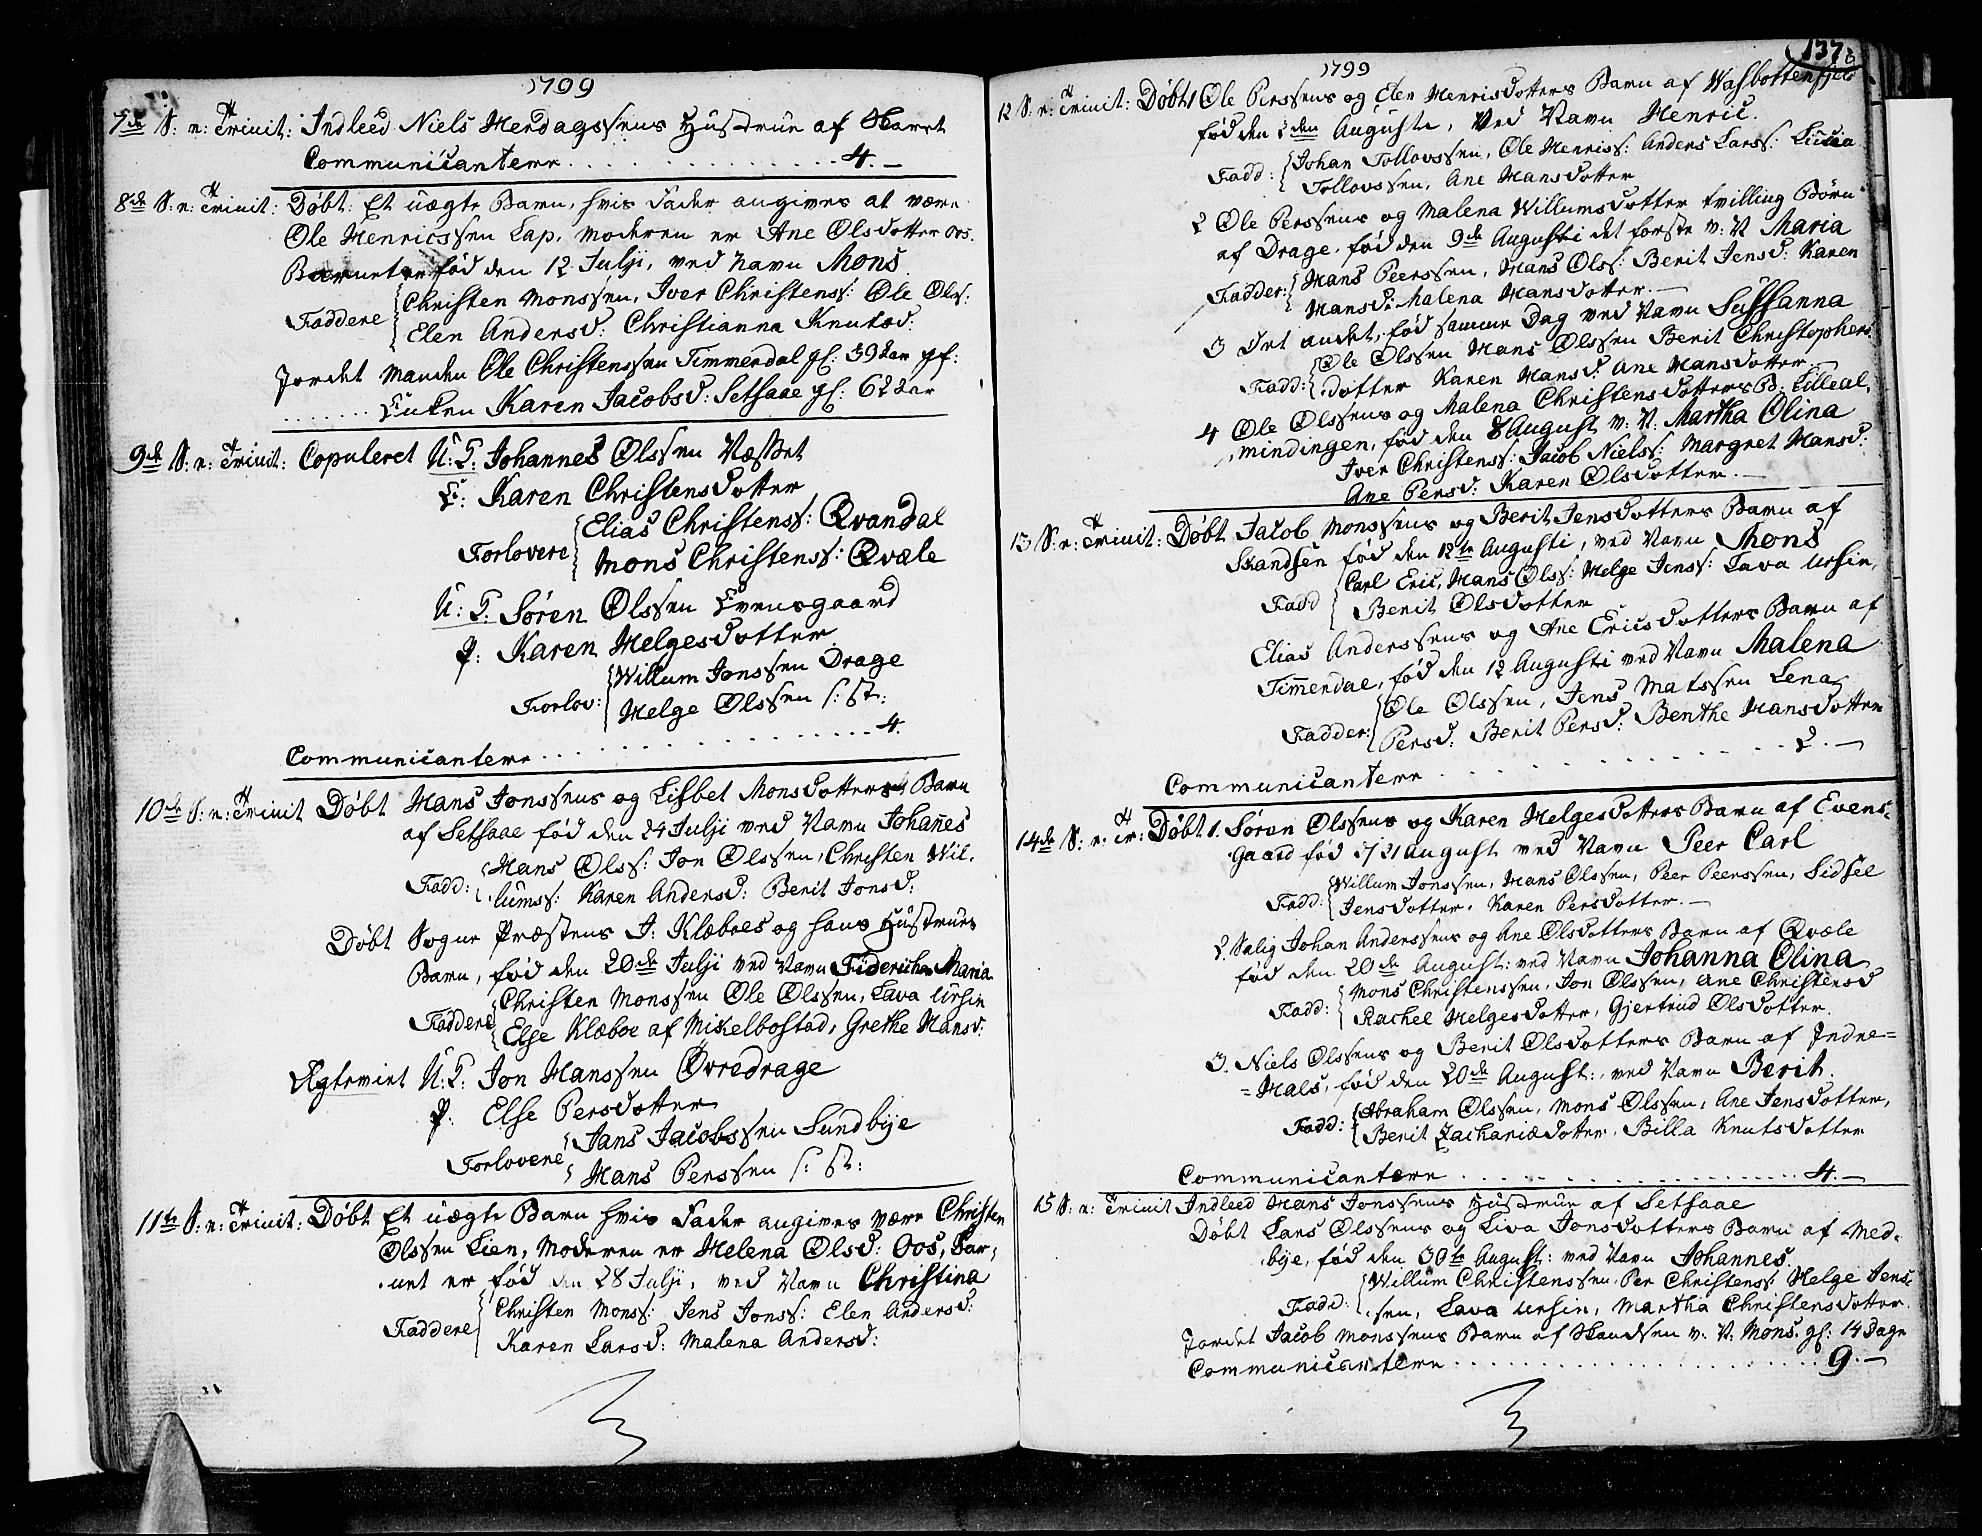 1799
7de S: e: Trinit: Indleed Niels Hendagssens Hustrue af Skaret
Communicantere . . . 4. –
8de S: e: Trinit: Døbt: Et uægte Barn, hvis Fader angives at være
Ole Henricssen Lap, Moderen er Ane Olsdotter Oos.
Barnet er fød den 12 Julji, ved Navn Mons
Faddere Christen Monssen, Iver Christens: Ole Ols:
Elen Andersd: Christianna Knutsd:
Jordet Manden Ole Christenssen Timmerdal gl: 39 Aar og:
. . . . . Enken Karen Jacobsd: Setsaae gl: 62 Aar
9de S: e: Trinit: Copuleret U: K: Johannes Olssen Næstet
E: Karen Christensdotter
Forlovere Elias Christens: Qvandal
Mons Christens: Qvæle
U: K: Søren Olssen Evensgaard
P: Karen Helgesdotter
Forlov: Willum Jonssen Drage
Helge Olssen s: St:
Communicantere . . . 4.
10de S: e: Trinit Døbt Hans Jonssens og Lisbet Monsdotters Barn
af Setsaae fød den 24 Julji ved Navn Johannes
Fadd: Hans Olss: Jon Olssen, Christen Wil-
lumss: Karen Andersd: Berit Jonsd:
Døbt Sogne Præstens J: Klæboes og hans Hustrues
Barn, fød den 20de Julji ved Navn Fidericha Maria
Faddere Christen Monssen Ole Olssen, Lava Ursin
Else Klæboe af Mikelbostad, Grethe Hansd:
Ægteviet U: K: Jon Hanssen Øvredrage
P: Else Persdotter
Forlovere Hans Jacobssen Sundbye
Hans Perssen s: St:
11te S: e: Trinit: Døbt Et uægte Barn hvis Fader angives være Christen
Olssen Lien, Moderen er Helena Olsd: Oos, Bar-
net er fød den 28 Julji, ved Navn Christina
Faddere Christen Monss: Jens Jonss: Elen Andersd:
Karen Larsd: Malena Andersd:
137
1799
12 S. e: Trinit: Døbt 1 Ole Perssens og Elen Henrisdotters Barn af Wasbottenfjeld
fød den 2den Augusti, Ved Navn Henric.
Fadd: Johan Tollovssen, Ole Henriss: Anders Larss: Lucia
Tollovssen, Ane Hansdotter
2 Ole Perssens og Malena Willumsdotter tvilling Børn
af Drage, fød den 9de Augusti det første v: N Maria
Fadder: Hans Peerssen, Hans Olss: Berit Jensd: Karen
Hansd: Malena Hansdotter. –
3 Det andet, fød samme Dag ved Navn Sussanna
Fadd: Ole Olssen Hans Olssen Berit Christophers
dotter Karen Hansd Ane Hansdotter –
4 Ole Olssens og Malena Christensdotters B: Lilleal-
mindingen, fød den 8 August v: N: Martha Olina
Iver Christens: Jacob Nielss: Margret Hansd:
Ane Persd: Karen Olsdotter. –
13 S: e: Trinit: Døbt Jacob Monssens og Berit Jensdotters Barn af
Skandsen fød den 12te Augusti, ved Navn Mons
Fadd Carl Eric, Hans Olss: Helge Jenss: Lava Ursin,
Berit Olsdotter
Elias Anderssens og Ane Ericsdotters Barn af
Timerdal, fød den 12 Augusti ved Navn Malena
Fadder: Ole Olssen, Jens Matssen Lena
Persd: Berit Persd: Benthe Hansdotter
Communicantere . . . 2. –
14de S: e: Tr: Døbt 1. Søren Olssens og Karen Helgesdotters Barn af Evens-
gaard fød d 21 August ved Navn Peer Carl
Fadd: Willum Jonssen, Hans Olssen, Peer Peerssen, Sidsel
Jensdotter. Karen Persdotter. –
2. Salig Johan Anderssens og Ane Olsdotters Barn af Qvæle
fød den 20de August: ved Navn Johanna Olina
Fadd: Mons Christenssen, Jon Olssen, Ane Christensd
Rachel Helgesdotter, Gjertrud Olsdotter.
3. Niels Olssens og Berit Olsdotters Barn af Indre=
=Hals, fød den 20de August:, ved Navn Berit.
Fadd: Abraham Olssen, Mons Olssen, Ane Jensdotter,
Berit Zachariædotter. Billa Knutsdotter
Communicantere . . . 4. –
15 S: e: Trinit Indleed Hans Jonssens Hustrue af Setsaae
Døbt Lars Olssens og Liva Jonsdotters Barn af Med-
bye, fød den 30te August: ved Navn Johannes.
Fadd: Willum Christenssen, Per Christens: Helge Jens-
sen, Lava Ursin, Martha Christensdotter.
Jordet Jacob Monssens Barn af Skandsen v. N: Mons. gl: 14 Dage
Communicantere . . . 9. –